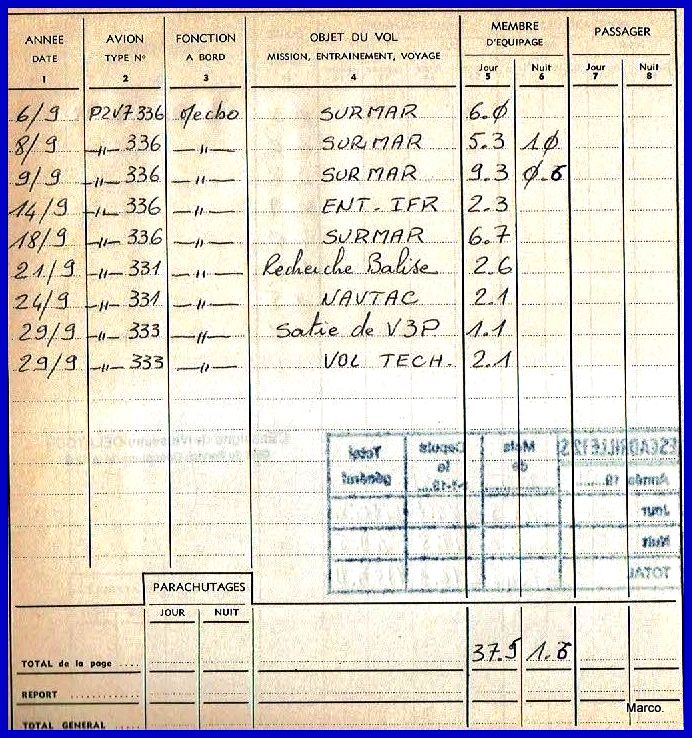 ANNEE DATE AVION TYPE N° FONCTION A BORD OBJET DU VOL MISSION, ENTRAINEMENT, VOYAGE MEMBRE D'EQUIPAGE PASSAGER
Jour Nuit Jour Nuit
1 2 3 4 5 6 7 8
6/9 P2V7 336 Mecbo SURMAR 6.0
8/9 -"- 336 -"- SURMAR 5.3 10
9/9 -"- 336 -"- SURMAR 9.3 0.6
14/9 -"- 336 -"- ENT-IFR 2.3
18/9 -"- 336 -"- SURMAR 6.7
21/9 -"- 331 -"- Recherche Balise 2.6
24/9 -"- 331 -"- NAVTAC 2.1
29/9 -"- 333 -"- Satie de V3P 1.1
29/9 -"- 333 -"- VOL TECH. 2.1
ESCADRILLE 12 S Mois de Depuis le Total général
Année 19
Jour
Nuit
TOTAL
PARACHUTAGES
JOUR NUIT
TOTAL de la page .... 37.5 1.6
REPORT
TOTAL GENERAL
Marco.